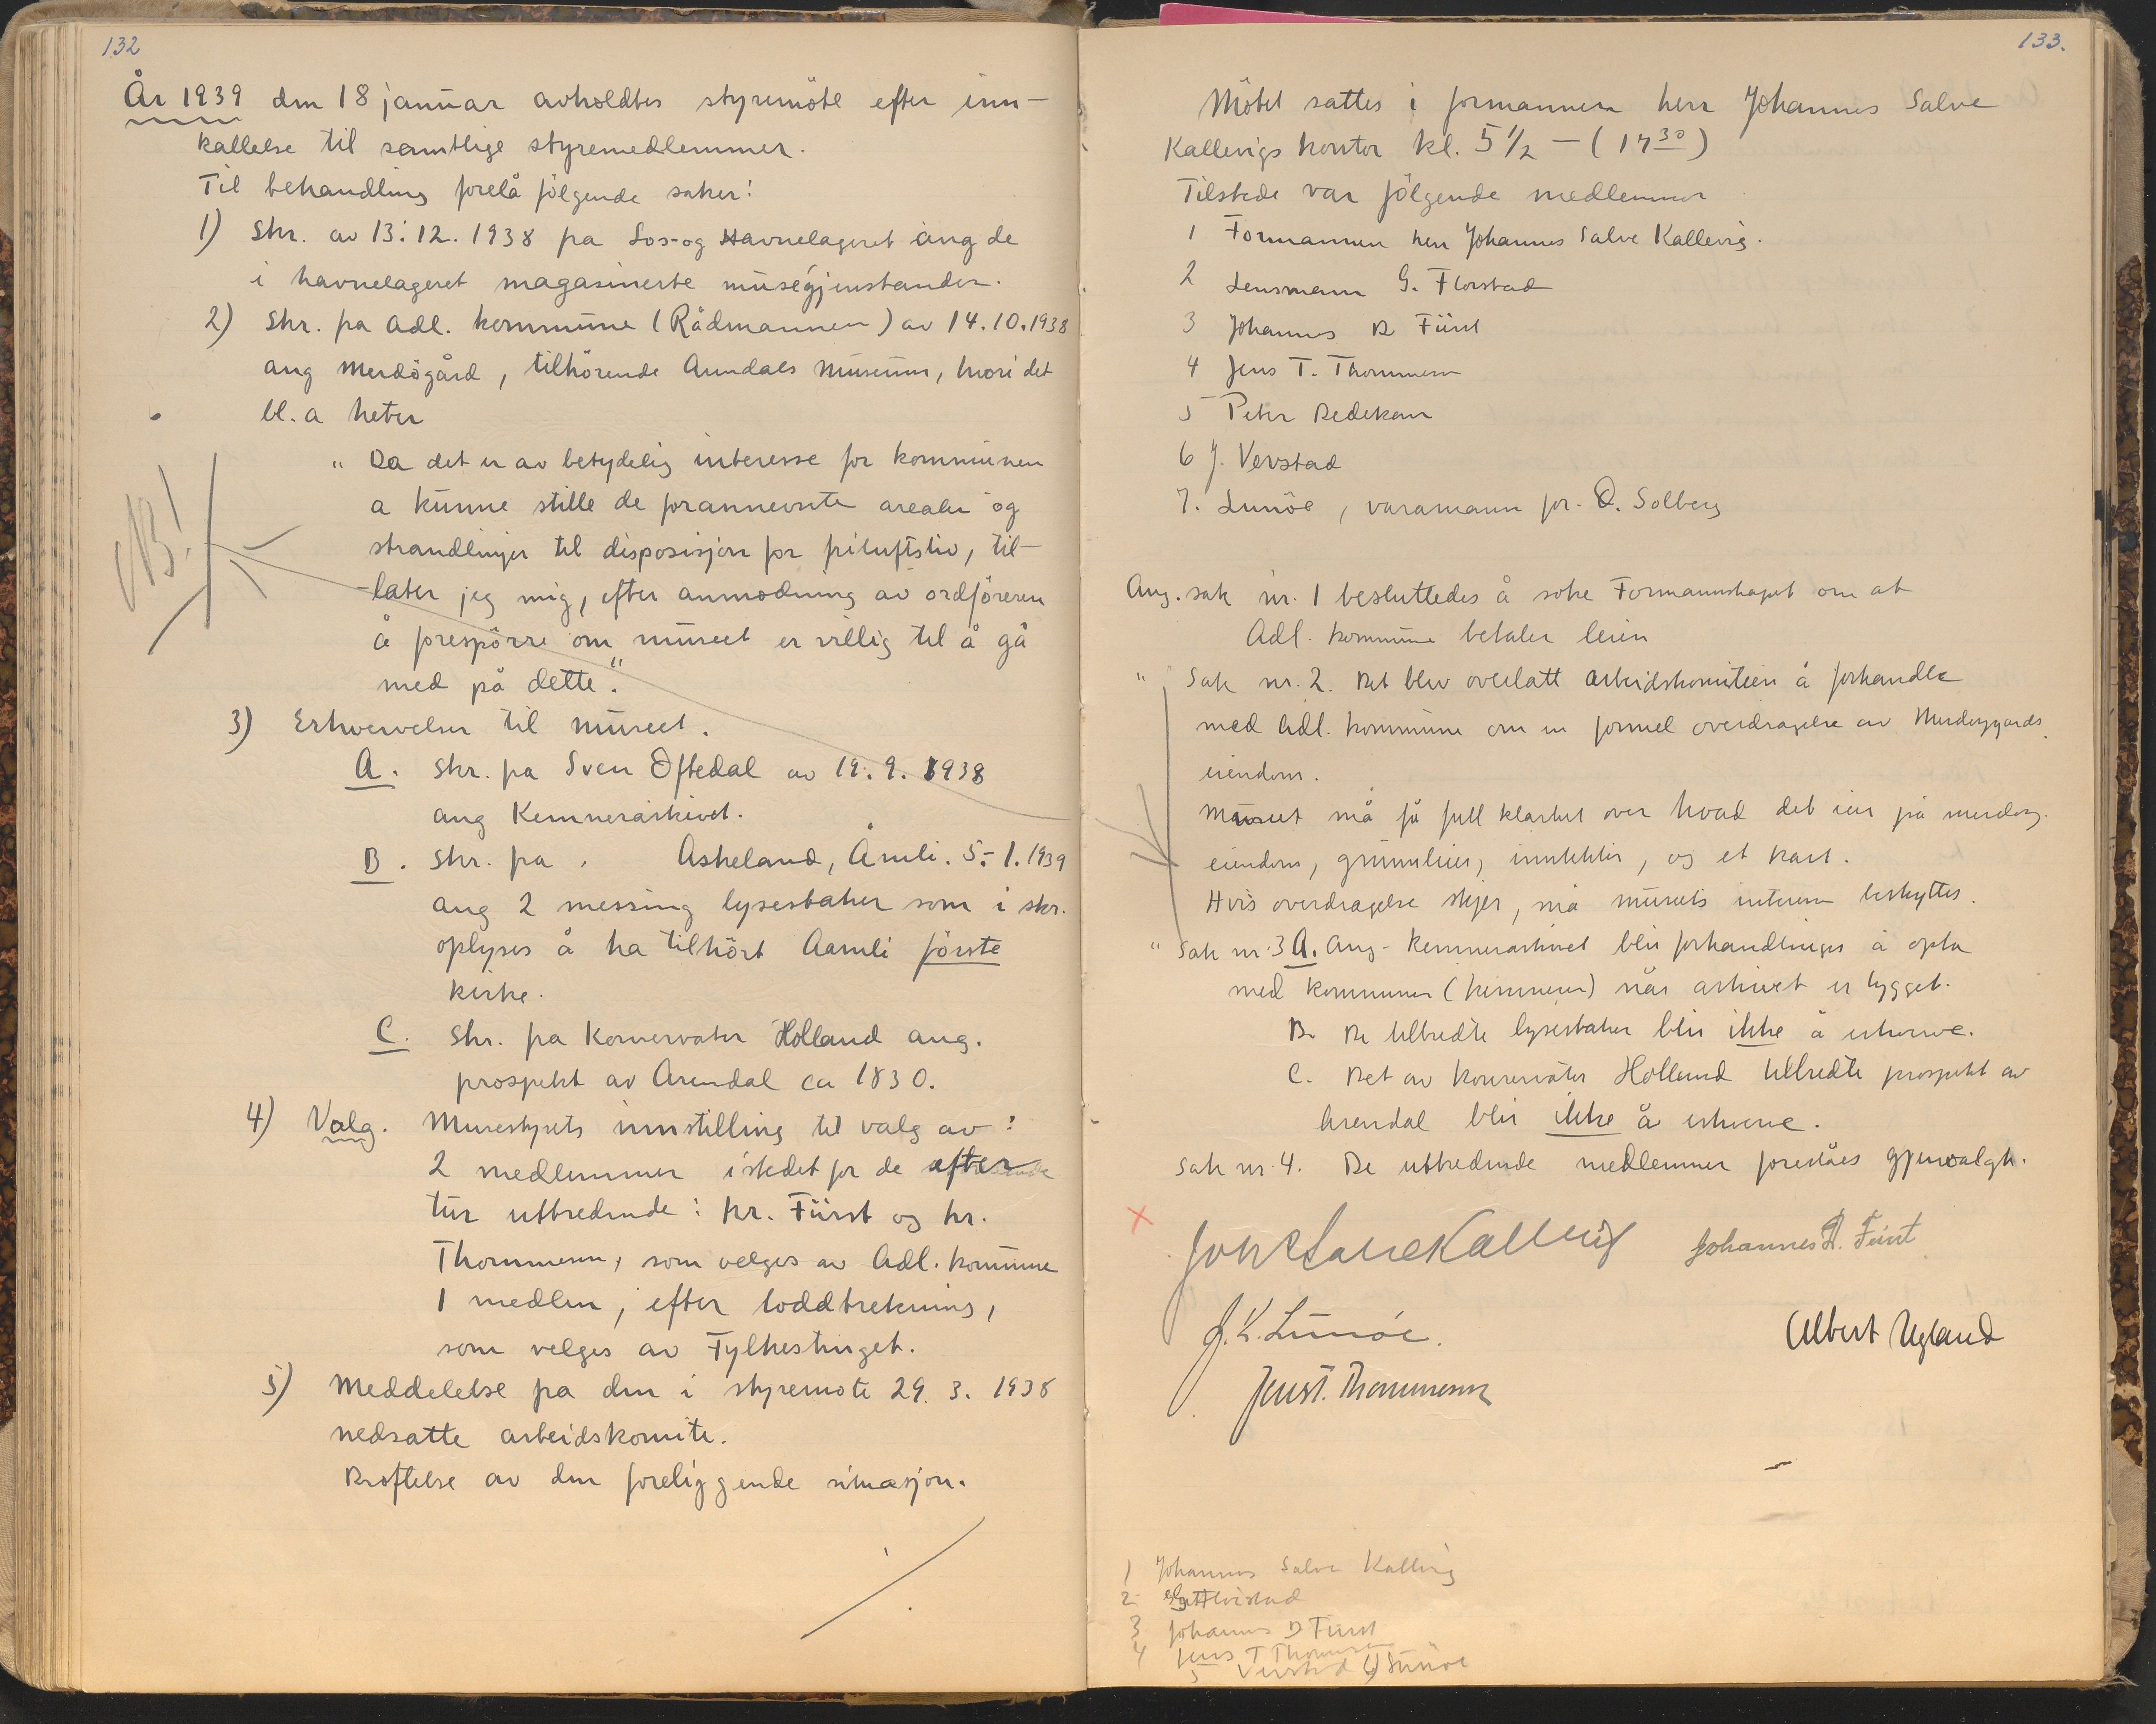 132
År 1939 den 18 januar avholdtes styremöte efter inn-
kallelse til samtlige styremedlemmer.
Til behandling forelå fölgende saker:
1) Skr. av 13.12.1938 fra Los-og Havnelageret ang de
i havnelageret magasinerte musegjenstander.
2) Skr. fra Adl. kommune (Rådmannen) av 14.10.1938
ang Merdögård, tilhörende Arendals Museum, hvori det
bl. a heter
" Da det er av betydelig interesse for kommunen
NB!
a kunne stille de forannevnte arealer og
strandlinjer til disposisjon for friluftsliv, til-
later jeg mig, efter anmodning av ordföreren
å forespörre om museet er villig til å gå
med på dette".
3) Erhvervelser til museet.
A. Skr. fra Sven Oftedal av 19.9.1938
ang Kemnerarkivet.
B. Skr. fra Askeland, Åmli. 5.-1.1939
ang 2 messing lysestaker som i skr.
oplyses å ha tilhört Aamli förste
kirke.
C. Skr. fra Konservator Holland ang.
prospekt av Arendal ca 1830.
4) Valg. Musestyrets innstilling til valg av:
2 medlemmer istedet for de efter
tur uttredende: hr. Fürst og hr.
Thommesen, som velges av Adl. kommune
1 medlem, efter loddtrekning,
som velges av Fylkestinget.
5) Meddelelse fra den i styremöte 29.3.1938
nedsatte arbeidskomite.
Dröftelse av den foreliggende situasjon.
133.
Mötet sattes i formannen herr Johannes Salve
Kallevigs kontor kl. 5 1/2 - (17 30)
Tilstede var fölgende medlemmer
1 Formannen herr Johannes Salve Kallevig.
2 Lensmann G. Flovstad
3 Johannes D Fürst
4 Jens T. Thommesen
5 Peter Dedekam
6 J. Vevstad
7. Lunöe, varamann for O. Solberg
Ang. sak nr. 1 besluttedes å söke Formannskapet om at
Adl. kommune betaler leien
" Sak nr. 2. Det blev overlatt arbeidskomiteen å forhandle
med Adl. kommune om en formel overdragelse av Merdøygaards
eiendom.
Museet må få full klarhet over hvad det eier på merdøy.
eiendom, grunnleier, inntekter, og et kart.
Hvis overdragelse skjer, må museets interesser beskyttes.
" Sak nr. 3 A. Ang. kemnerarkivet blir forhandlinger å opta
med kommunen (kemneren) når arkivet er bygget.
B. De tilbudte lysestaker blir ikke å erhverve.
C. Det av konservator Holland tilbudte prospekt av
Arendal blir ikke å erhverve.
Sak nr. 4. De uttredende medlemmer foreslåes gjenvalgt.
Joh Salve Kallevig Johannes D. Fürst
J. K. Lunöe. Albert Ugland
Jens T. Thommesen
1 Johannes Salve Kallevig
2 Flovstad
3 Johannes D Fürst
4 Jens T Thommesen
5 Vevstad 6) Lunöe